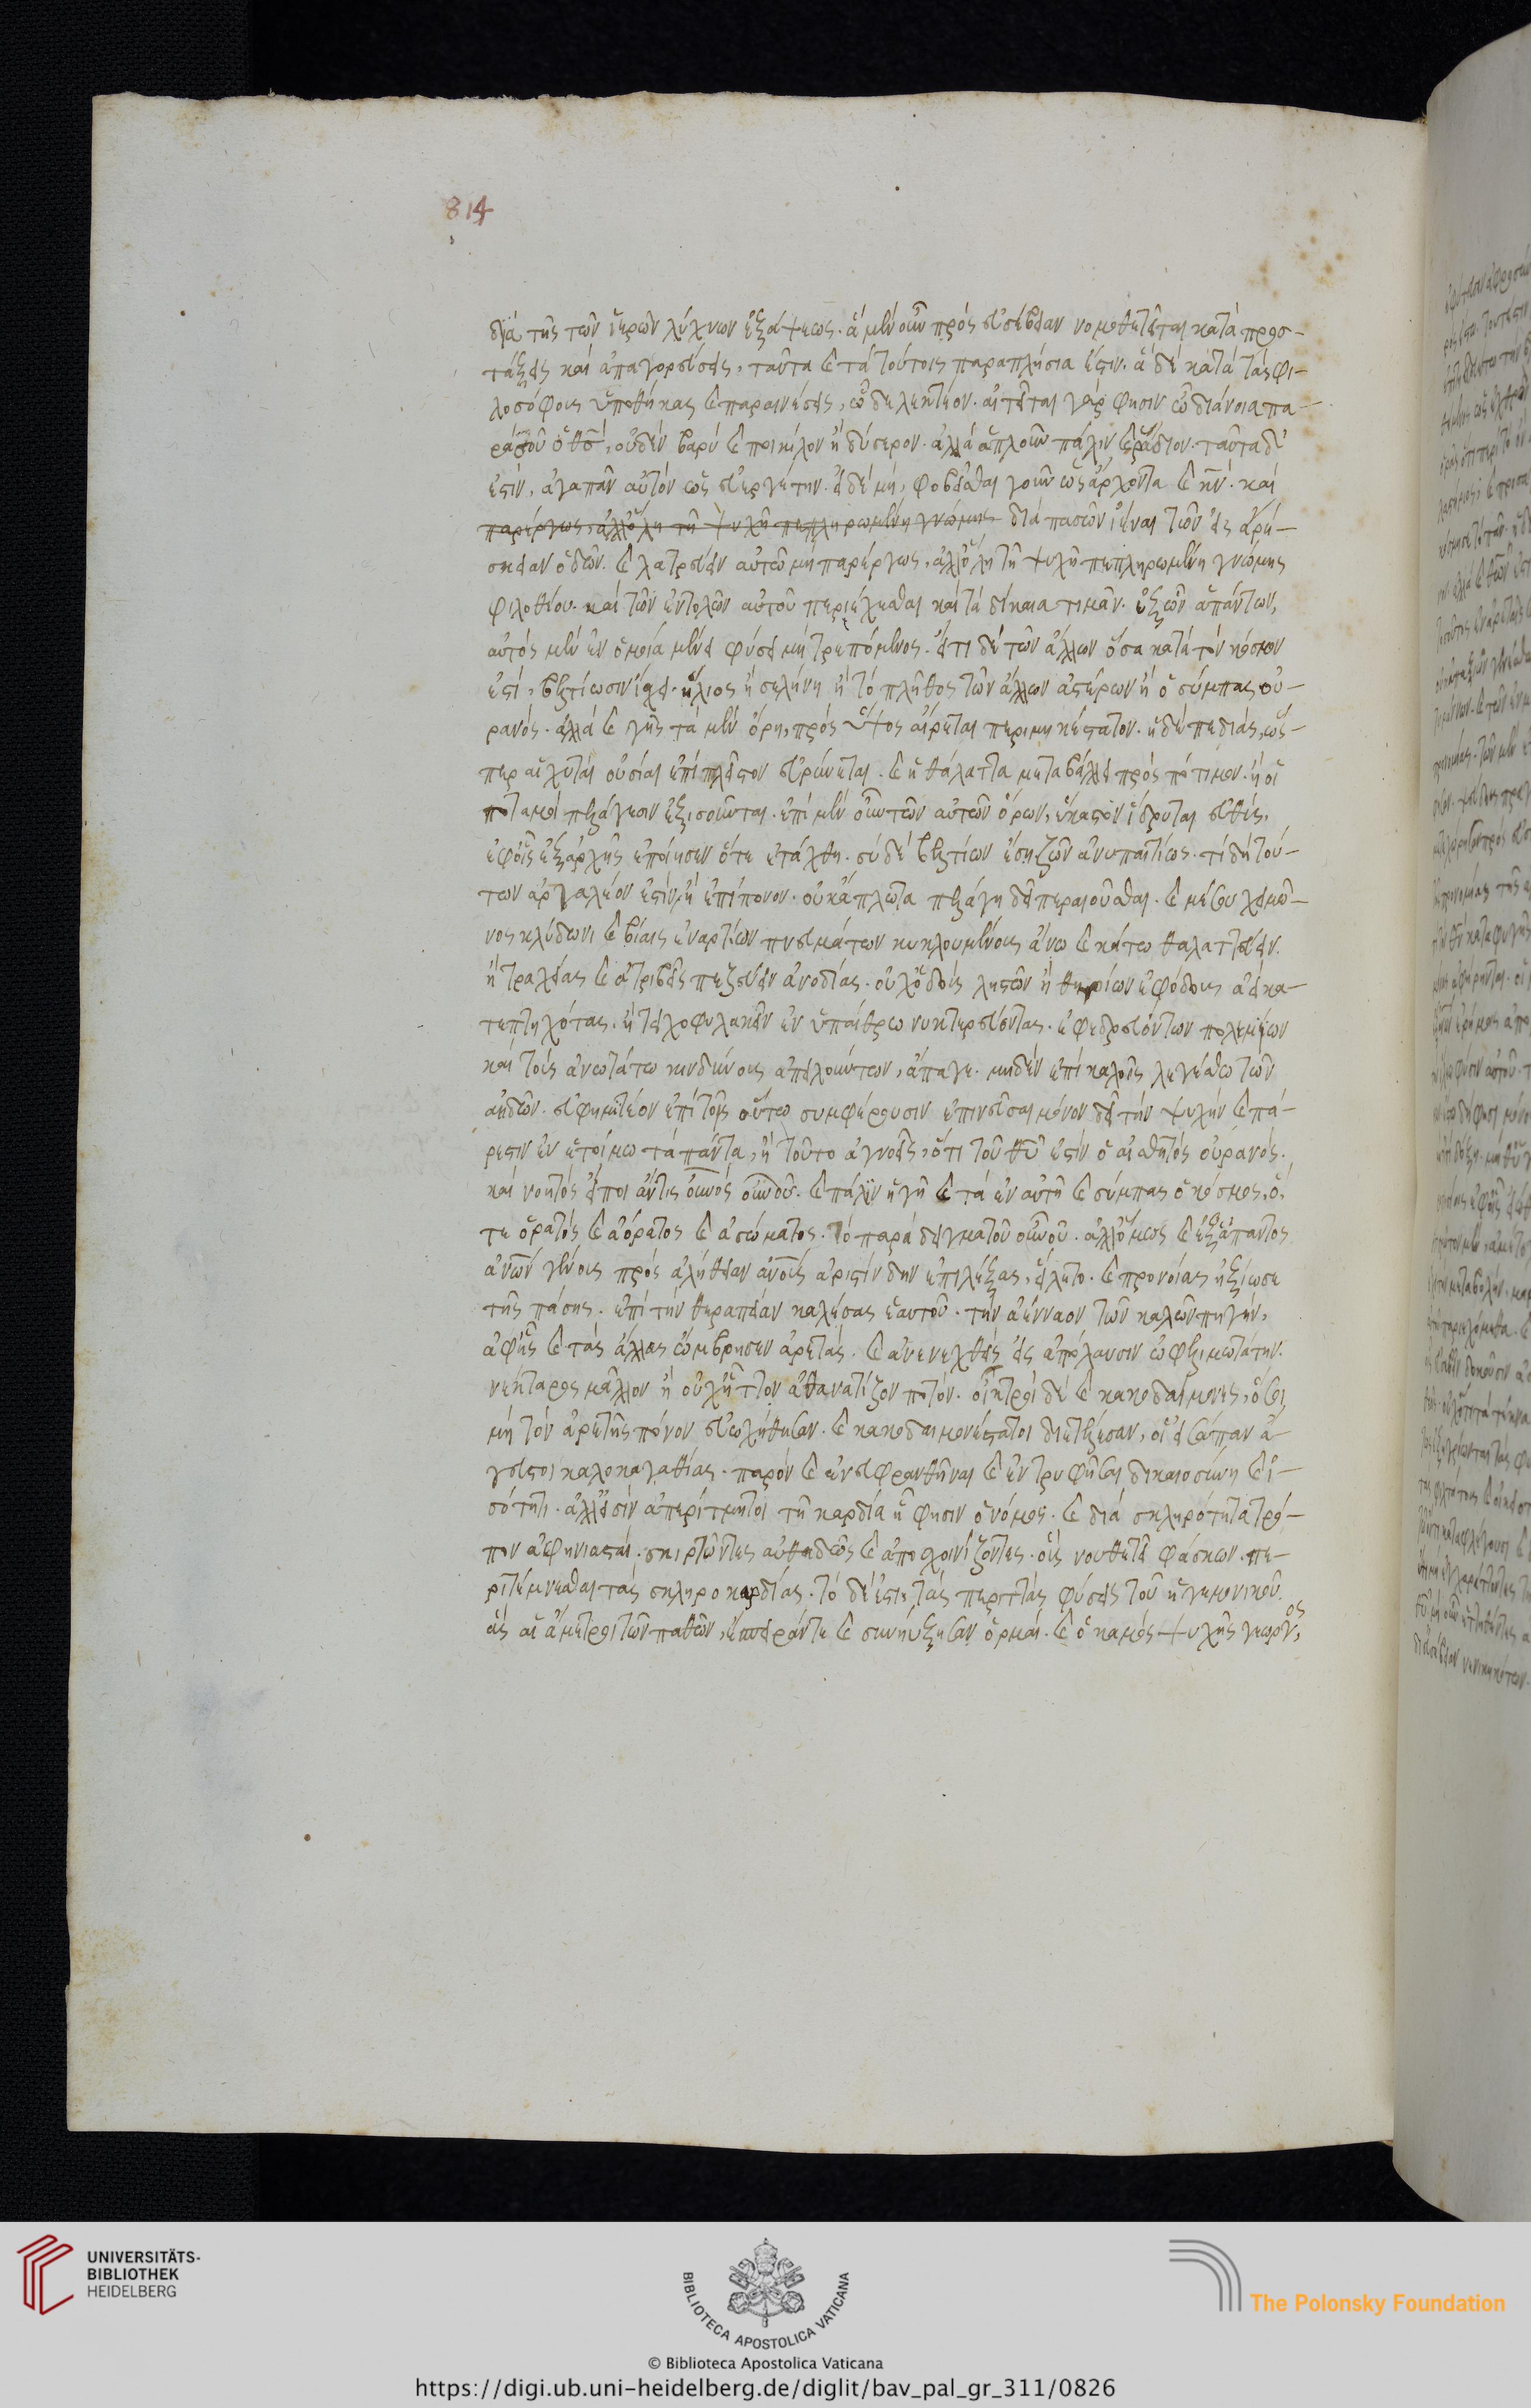 814
διὰ τῆς τῶν ἱερῶν λύχνων ἐξάψεως. ἃ μὲν οὖν πρὸς εὐσέβειαν νομοθετεῖται κατὰ προσ-
τάξεις καὶ ἀπαγορεύσεις, ταῦτα καὶ τὰ τούτοις παραπλήσια ἐστιν. ἃ δὲ κατὰ τὰς φι-
λοσόφους ὑποθήκας καὶ παραινέσεις, ὧδε λεκτέον. αἰτεῖται γάρ φησιν ὦ διάνοια πα-
ρά σοῦ ὁ θς, οὐδὲν βαρὺ καὶ ποικίλον ἢ δύσερον. ἀλλὰ ἁπλοῦν πάλιν καὶ ῥάδιον. ταῦτα δέ
ἐστιν, ἀγαπᾶν αὐτὸν ὡς εὐεργέτην. εἰ δὲ μή, φοβεῖσθαι γοῦν ὡς ἄρχοντα καὶ κν. καὶ
παρέργως, ἀλλ' ὅλῃ τῇ ψυχῇ πεπληρωμένῃ γνώμης διὰ πασῶν ἰέναι τῶν εἰς ἀρέ-
σκειαν ὁδῶν. καὶ λατρεύειν αὐτῷ μὴ παρέργως, ἀλλ' ὅλῃ τῇ ψυχῇ πεπληρωμένῃ γνώμης
φιλοθέου. καὶ τῶν ἐντολῶν αὐτοῦ περιέχεσθαι καὶ τὰ δίκαια τιμᾶν. ἐξ ὧν ἁπάντων,
αὐτὸς μὲν ἐν ὁμοίᾳ μένει φύσει μὴ τρεπόμενος. ἔτι δὲ τῶν ἄλλων ὅσα κατὰ τὸν κόσμον
ἐστί, βελτίωσιν ἴσχει. ἥλιος ἢ σελήνη ἢ τὸ πλῆθος τῶν ἄλλων ἀστέρων ἢ ὁ σύμπας οὐ-
ρανός. ἀλλὰ καὶ γῆς τὰ μὲν ὄρη, πρὸς ὕψος αἴρεται περιμηκέστατον. ἡ δὲ πεδιάς, ὥσ-
περ αἱ χυταὶ οὐσίαι ἐπὶ πλεῖστον εὐρύνεται. καὶ ἡ θάλαττα μεταβάλλει πρὸς πότιμον. ἢ οἱ
ποταμοὶ πελάγεσιν ἐξισοῦνται. ἐπὶ μὲν οὖν τῶν αὐτῶν ὅρων, ἕκαστον ἵδρυται εὐθύς,
ἐφ' οἷς ἐξ ἀρχῆς ἐποίησεν ὅτε ἐτάχθη. σὺ δὲ βελτίων ἔσῃ ζῶν ἀνυπαιτίως. τί δὴ τού-
των ἀργαλέον ἐστὶν ἢ ἐπίπονον. οὐκ ἄπλωτα πελάγη δεῖ περαιοῦσθαι. καὶ μέσου χειμῶ-
νος κλύδωνι καὶ βίαις ἐναντίων πνευμάτων κυκλουμένους ἄνω καὶ κάτω θαλαττεύειν.
ἢ τραχείας καὶ ἀτριβεῖς πεζεύειν ἀνοδίας. οὐχ ὁδούς λῃστῶν ἢ θηρίων ἐφόδους ἀεὶ κα-
τεπτηχότας. ἢ τειχοφυλακεῖν ἐν ὑπαίθρῳ νυκτερεύοντας. ἐφεδρευόντων πολεμίων
καὶ τοὺς ἀνωτάτω κινδύνους ἀπειλούντων, ἄπαγε. μηδὲν ἐπὶ καλοῖς λεγέσθω τῶν
ἀηδῶν. εὐφημητέον ἐπὶ τοῖς οὕτω συμφέρουσιν ἐπινεῦσαι μόνον δεῖ τὴν ψυχὴν καὶ πά-
ρεστιν ἐν ἑτοίμῳ τὰ πάντα, ἢ τοῦτο ἀγνοεῖς, ὅτι τοῦ θυ ἐστὶν ὁ αἰσθητὸς οὐρανός.
καὶ νοητὸς εἴποι ἄν τις οὐνὸς οὐνοῦ. καὶ πάλιν ἡ γῆ καὶ τὰ ἐν αὐτῇ καὶ σύμπας ὁ κόσμος, ὅ
τε ὁρατὸς καὶ ἀόρατος καὶ ἀσώματος. τὸ παράδειγμα τοῦ οὐνοῦ. ἀλλ' ὅμως καὶ ἐξ ἅπαντος
ἀνων γένους πρὸς ἀλήθειαν ἀνους ἀριστίνδην ἐπιλέξας, εἵλετο. καὶ προνοίας ἠξίωσε
τῆς πάσης. ἐπὶ τὴν θεραπείαν καλέσας ἑαυτοῦ. τὴν ἀένναον τῶν καλῶν πηγήν,
ἀφ' ἧς καὶ τὰς ἄλλας ὤμβρησεν ἀρετάς. καὶ ἀνενεχθεὶς εἰς ἀπόλαυσιν ὠφελιμωτάτην.
νέκταρος μᾶλλον ἢ οὐχ ἧττον ἀθανατίζον ποτόν. οἰκτροὶ δὲ καὶ κακοδαίμονες, ὅσοι
μὴ τὸν ἀρετῆς πόνον εὐωχήθησαν. καὶ κακοδαιμονέστατοι διετέλεσαν, οἱ εἰσάπαν ἄ-
γευστοι καλοκαγαθίας. παρὸν καὶ ἐνευφρανθῆναι καὶ ἐντρυφῆσαι δικαιοσύνῃ καὶ ὁ-
σιότητι. ἀλλ' εἰσὶν ἀπερίτμητοι τῇ καρδίᾳ ᾗ φησιν ὁ νόμος. καὶ διὰ σκληρότητα τρό-
που ἀφηνιασταί. σκιρτῶντες αὐθαδῶς καὶ ἀποσχοινίζοντες. οὓς νουθετεῖ φάσκων. πε-
ριτέμνεσθαι τὰς σκληροκαρδίας. τὸ δέ ἐστι, τὰς περιττὰς φύσεις τοῦ ἡγεμονικοῦ.
ἃς αἱ ἄμετροι τῶν παθῶν, ἔσπειράν τε καὶ συνηύξησαν ὁρμαί. καὶ ὁ κακὸς ψυχῆς γεωργός,
UNIVERSITÄTS-
BIBLIOTHEK
HEIDELBERG
BIBLIOTECA APOSTOLICA VATICANA
The Polonsky Foundation
© Biblioteca Apostolica Vaticana
https://digi.ub.uni-heidelberg.de/diglit/bav_pal_gr_311/0826